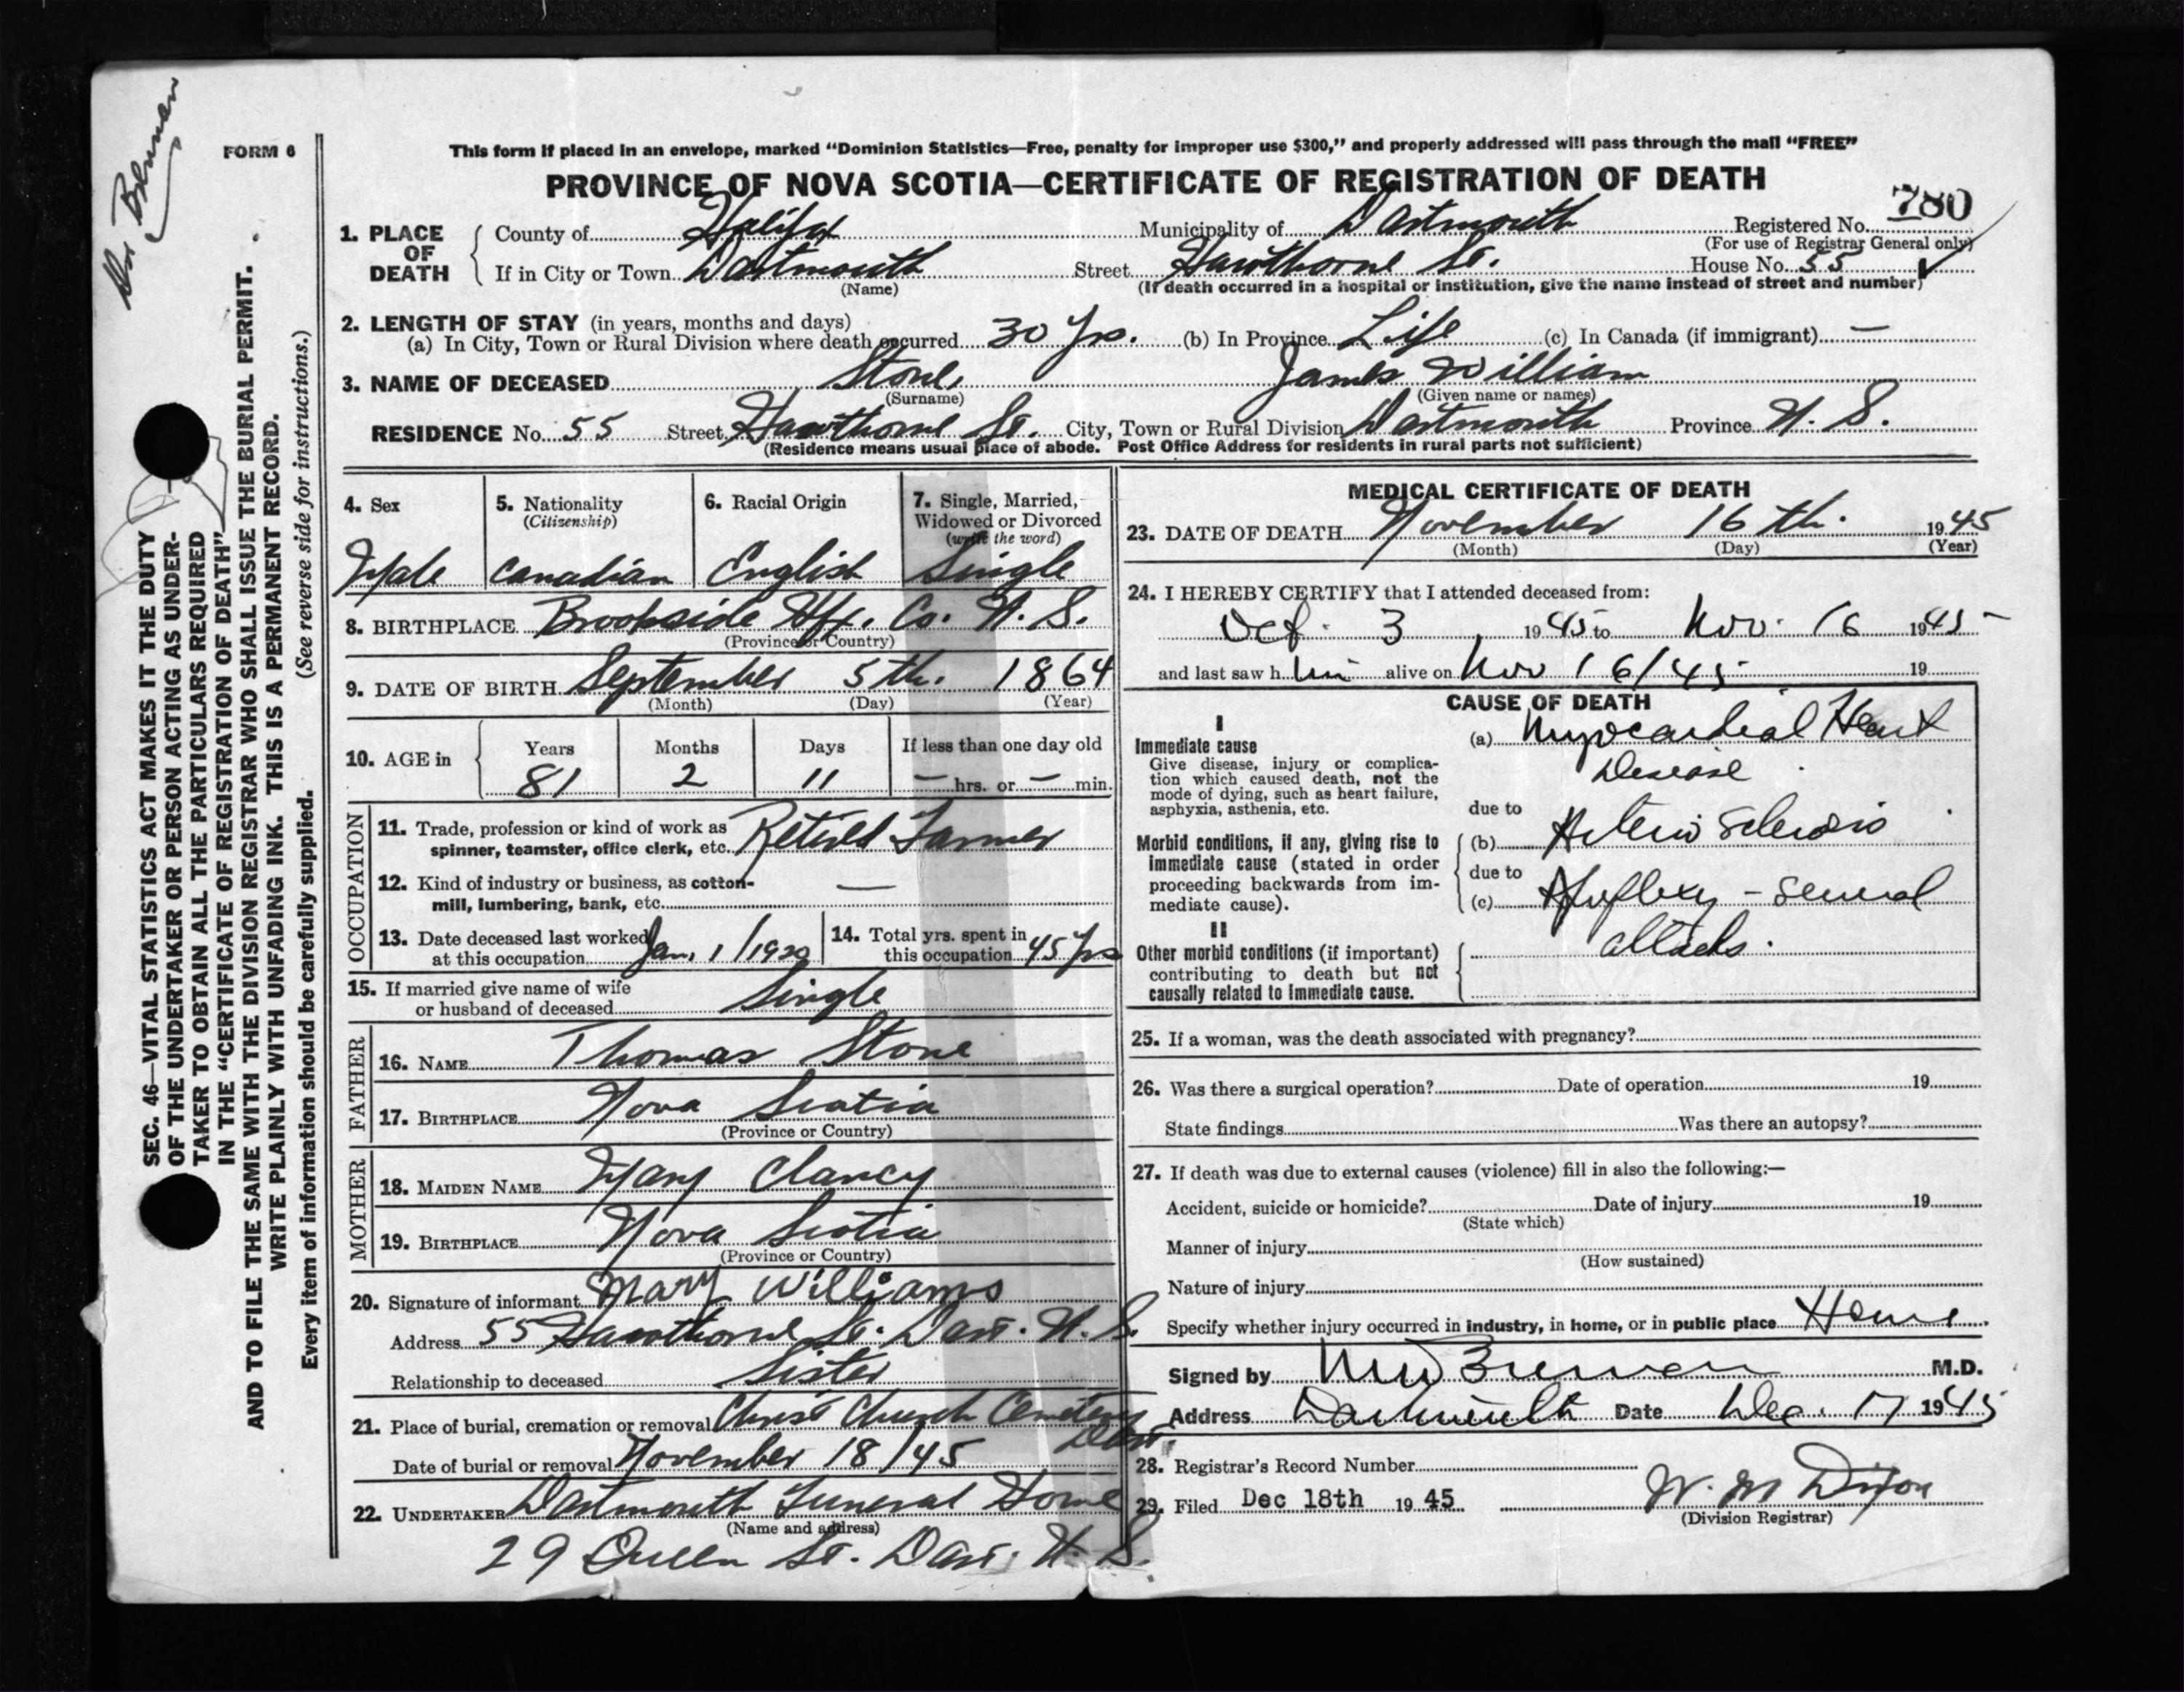 Dr Brennan
FORM 6
This form if placed in an envelope, marked “Dominion Statistics—Free, penalty for improper use $300,” and properly addressed will pass through the mail “FREE”
PROVINCE OF NOVA SCOTIA—CERTIFICATE OF REGISTRATION OF DEATH
780
1. PLACE OF DEATH
County of Halifax Municipality of Dartmouth Registered No.
(For use of Registrar General only)
If in City or Town Dartmouth Street Hawthorne St. House No. 55 ✓
(Name) (If death occurred in a hospital or institution, give the name instead of street and number)
2. LENGTH OF STAY (in years, months and days)
(a) In City, Town or Rural Division where death occurred 30 Yrs. (b) In Province Life (c) In Canada (if immigrant) —
3. NAME OF DECEASED Stone, James William
(Surname) (Given name or names)
RESIDENCE No. 55 Street Hawthorne St. City, Town or Rural Division Dartmouth Province N. S.
(Residence means usual place of abode. Post Office Address for residents in rural parts not sufficient)
4. Sex
Male
5. Nationality
(Citizenship)
Canadian
6. Racial Origin
English
7. Single, Married,
Widowed or Divorced
(write the word)
Single
8. BIRTHPLACE Brookside Hfx. Co. N. S.
(Province or Country)
9. DATE OF BIRTH September 5th. 1864
(Month) (Day) (Year)
10. AGE in
Years Months Days If less than one day old
81 2 11 — hrs. or — min.
OCCUPATION
11. Trade, profession or kind of work as
spinner, teamster, office clerk, etc. Retired Farmer
12. Kind of industry or business, as cotton-
mill, lumbering, bank, etc. —
13. Date deceased last worked
at this occupation Jan. 1/1920
14. Total yrs. spent in
this occupation 45 Yrs
15. If married give name of wife
or husband of deceased Single
FATHER
16. NAME Thomas Stone
17. BIRTHPLACE Nova Scotia
(Province or Country)
MOTHER
18. MAIDEN NAME Mary Clancy
19. BIRTHPLACE Nova Scotia
(Province or Country)
20. Signature of informant Mary Williams
Address 55 Hawthorne St. Dart. N. S.
Relationship to deceased Sister
21. Place of burial, cremation or removal Christ Church Cemetery
Dart.
Date of burial or removal November 18/45
22. UNDERTAKER Dartmouth Funeral Home
(Name and address)
29 Queen St. Dart. N. S.
MEDICAL CERTIFICATE OF DEATH
23. DATE OF DEATH November 16th. 1945
(Month) (Day) (Year)
24. I HEREBY CERTIFY that I attended deceased from:
Oct. 3 1945 to Nov. 16 1945
and last saw him alive on Nov 16/45 19
CAUSE OF DEATH
I
Immediate cause
Give disease, injury or complica-
tion which caused death, not the
mode of dying, such as heart failure,
asphyxia, asthenia, etc.
(a) Myocardial Heart
Disease
due to
Morbid conditions, if any, giving rise to
immediate cause (stated in order
proceeding backwards from im-
mediate cause).
(b) Arterio Sclerosis
due to
(c) Apoplexy - several
attacks.
II
Other morbid conditions (if important)
contributing to death but not
causally related to immediate cause.
25. If a woman, was the death associated with pregnancy?
26. Was there a surgical operation? Date of operation 19
State findings Was there an autopsy?
27. If death was due to external causes (violence) fill in also the following:—
Accident, suicide or homicide? Date of injury 19
(State which)
Manner of injury
(How sustained)
Nature of injury
Specify whether injury occurred in industry, in home, or in public place Home
Signed by Brennan M.D.
Address Dartmouth Date Dec. 17 1945
28. Registrar's Record Number
29. Filed Dec 18th 1945 W. M Dixon
(Division Registrar)
SEC. 46—VITAL STATISTICS ACT MAKES IT THE DUTY
OF THE UNDERTAKER OR PERSON ACTING AS UNDER-
TAKER TO OBTAIN ALL THE PARTICULARS REQUIRED
IN THE “CERTIFICATE OF REGISTRATION OF DEATH”
AND TO FILE THE SAME WITH THE DIVISION REGISTRAR WHO SHALL ISSUE THE BURIAL PERMIT.
WRITE PLAINLY WITH UNFADING INK. THIS IS A PERMANENT RECORD.
Every item of information should be carefully supplied. (See reverse side for instructions.)